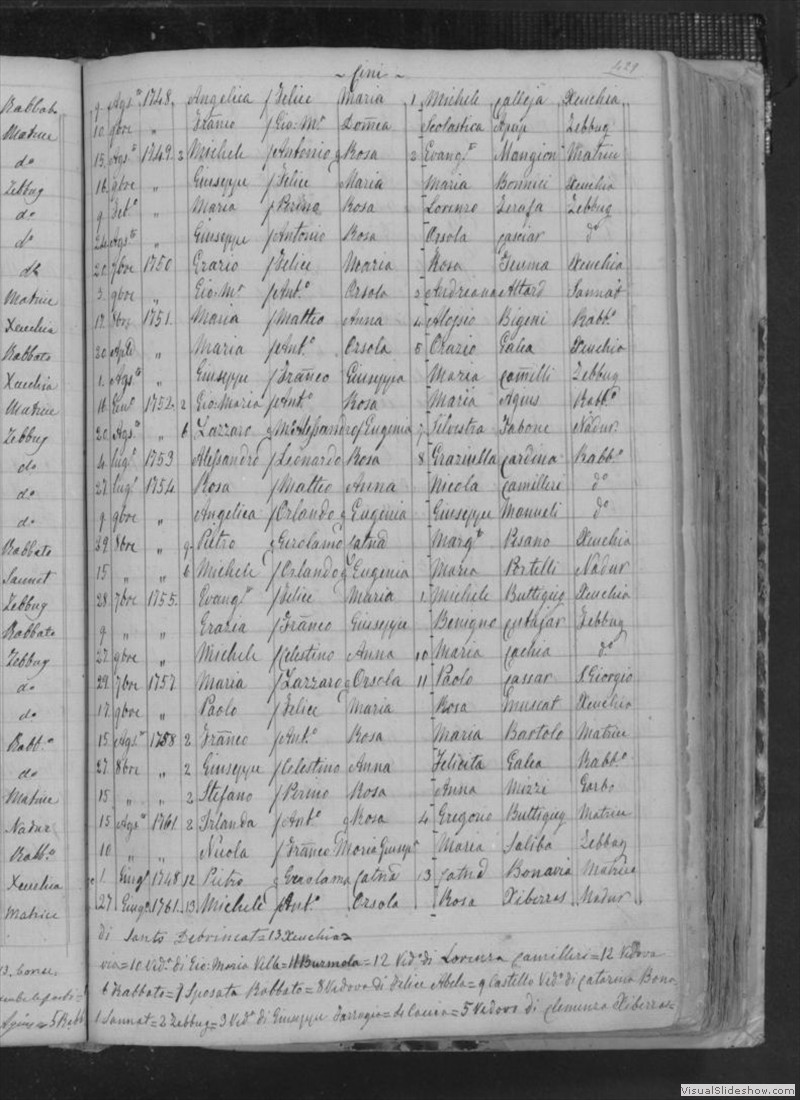 ~ Cini ~ 429
Rabbato 9. Ags.to 1748. Angelica / Felice Maria 1 Michele Calleja Xeuchia
Matrice 10 9bre „ Franco / Gio: M.a Dom.ca Scolastica Apap Zebbug
do 15 Ags.to 1749. 2 Michele / Antonio q Rosa 2 Evang.ta Mangion Matrice
Zebbug 16. 9bre „ Giuseppe / Felice Maria Maria Bonnici Xeuchia
do 9 „ Maria / Perino Rosa Lorenzo Zerafa Zebbug
do 24 Ags.to Giuseppe / Antonio Rosa Orsola Casciar do
do 20 7bre 1750 Grazio / Felice Maria Rosa Xeuchia
Matrice 3. 9bre „ Gio: M.a / Ant.o Orsola 3 Andreana Attard Sannat
Xeuchia 17. 1751. Maria / Matteo Anna 4 Aloisio Bigeni Rabb.o
Rabbato 20 Aple „ Maria / Ant.o Orsola 5 Orazio Galea Xeuchia
Xeuchia 1. Ags.to „ Giuseppe / Franco Giuseppa Maria Camilli Zebbug
Matrice 16 Gen.o 1752. 2 Gio: Maria / Ant.o Rosa Maria Agius Rabb.o
Zebbug 20. Ags.to „ 6 Lazzaro q M.o Alessandro / Eugenia 7 Silvestra Tabone Nadur
do 4 lug.o 1753 Alessandro / Leonardo Rosa 8 Grazinella Cardona Rabb.o
do 27 lug.o 1754 Rosa / Matteo Anna Nicola Camilleri do
do 9 9bre „ Angelica / Orlando q Eugenia Giuseppe Manueli do
Rabbato 29 8bre „ 9. Pietro q Girolamo Catn.a Marg.ta Pisano Xeuchia
Sannat 15 „ „ 6 Michele / Orlando q Eugenia Maria Portelli Nadur
Zebbug 28. 7bre 1755. Evang.ta / Felice Maria 1. Michele Buttigieg Xeuchia
Rabbato 9 „ „ Grazia / Franco Giuseppe Benigno Cutajar Zebbug
Zebbug 27. 9bre „ Michele / Celestino Anna 10 Maria Cachia do
do 29. 7bre 1757. Maria / Lazzaro q Orsola 11 Paolo Cassar S. Giorgio
do 17 9bre „ Paolo / Felice Maria Rosa Muscat Xeuchia
Rabb.o 15 Ags.to 1758. 2 Franco / Ant.o Rosa Maria Bartolo Matrice
do 27 8bre „ 2 Giuseppe / Celestino Anna Felicita Galea Rabb.o
Matrice 15 „ „ 2 Stefano / Perino Rosa Anna Mizzi Garbo
Nadur 15 Ags.to 1761. 2 Irlanda / Ant.o q Rosa 4 Gregorio Buttigieg Matrice
Rabb.o 10 „ „ Nicola / Franco Maria Giusep.a Maria Saliba Zebbug
Xeuchia 1. Giug.o 1748 12 Pietro q Geralama Catn.a 13 Catn.a Bonavia Matrice
Matrice 27. Giug.o 1761. 13 Michele / Ant.o Orsola Rosa Xiberras Nadur
di Santo Debrincat = 13 Xeuchia =
via = 10 Vid.o di Gio: Maria Vella = 11 Burmola = 12 Vid.o di Lorenza Camilleri = 12 Vedova
6 Rabbato = 7 Sposata Rabbato = 8 Vedova di Felice Abela = 9 Castello Vid.o di Catarina Bona
1 Sannat = 2 Zebbug = 3 Ved.o di Giuseppe Farrugia = 5 Vedovo di Clemenza Xiberras =
VisualSlideshow.com